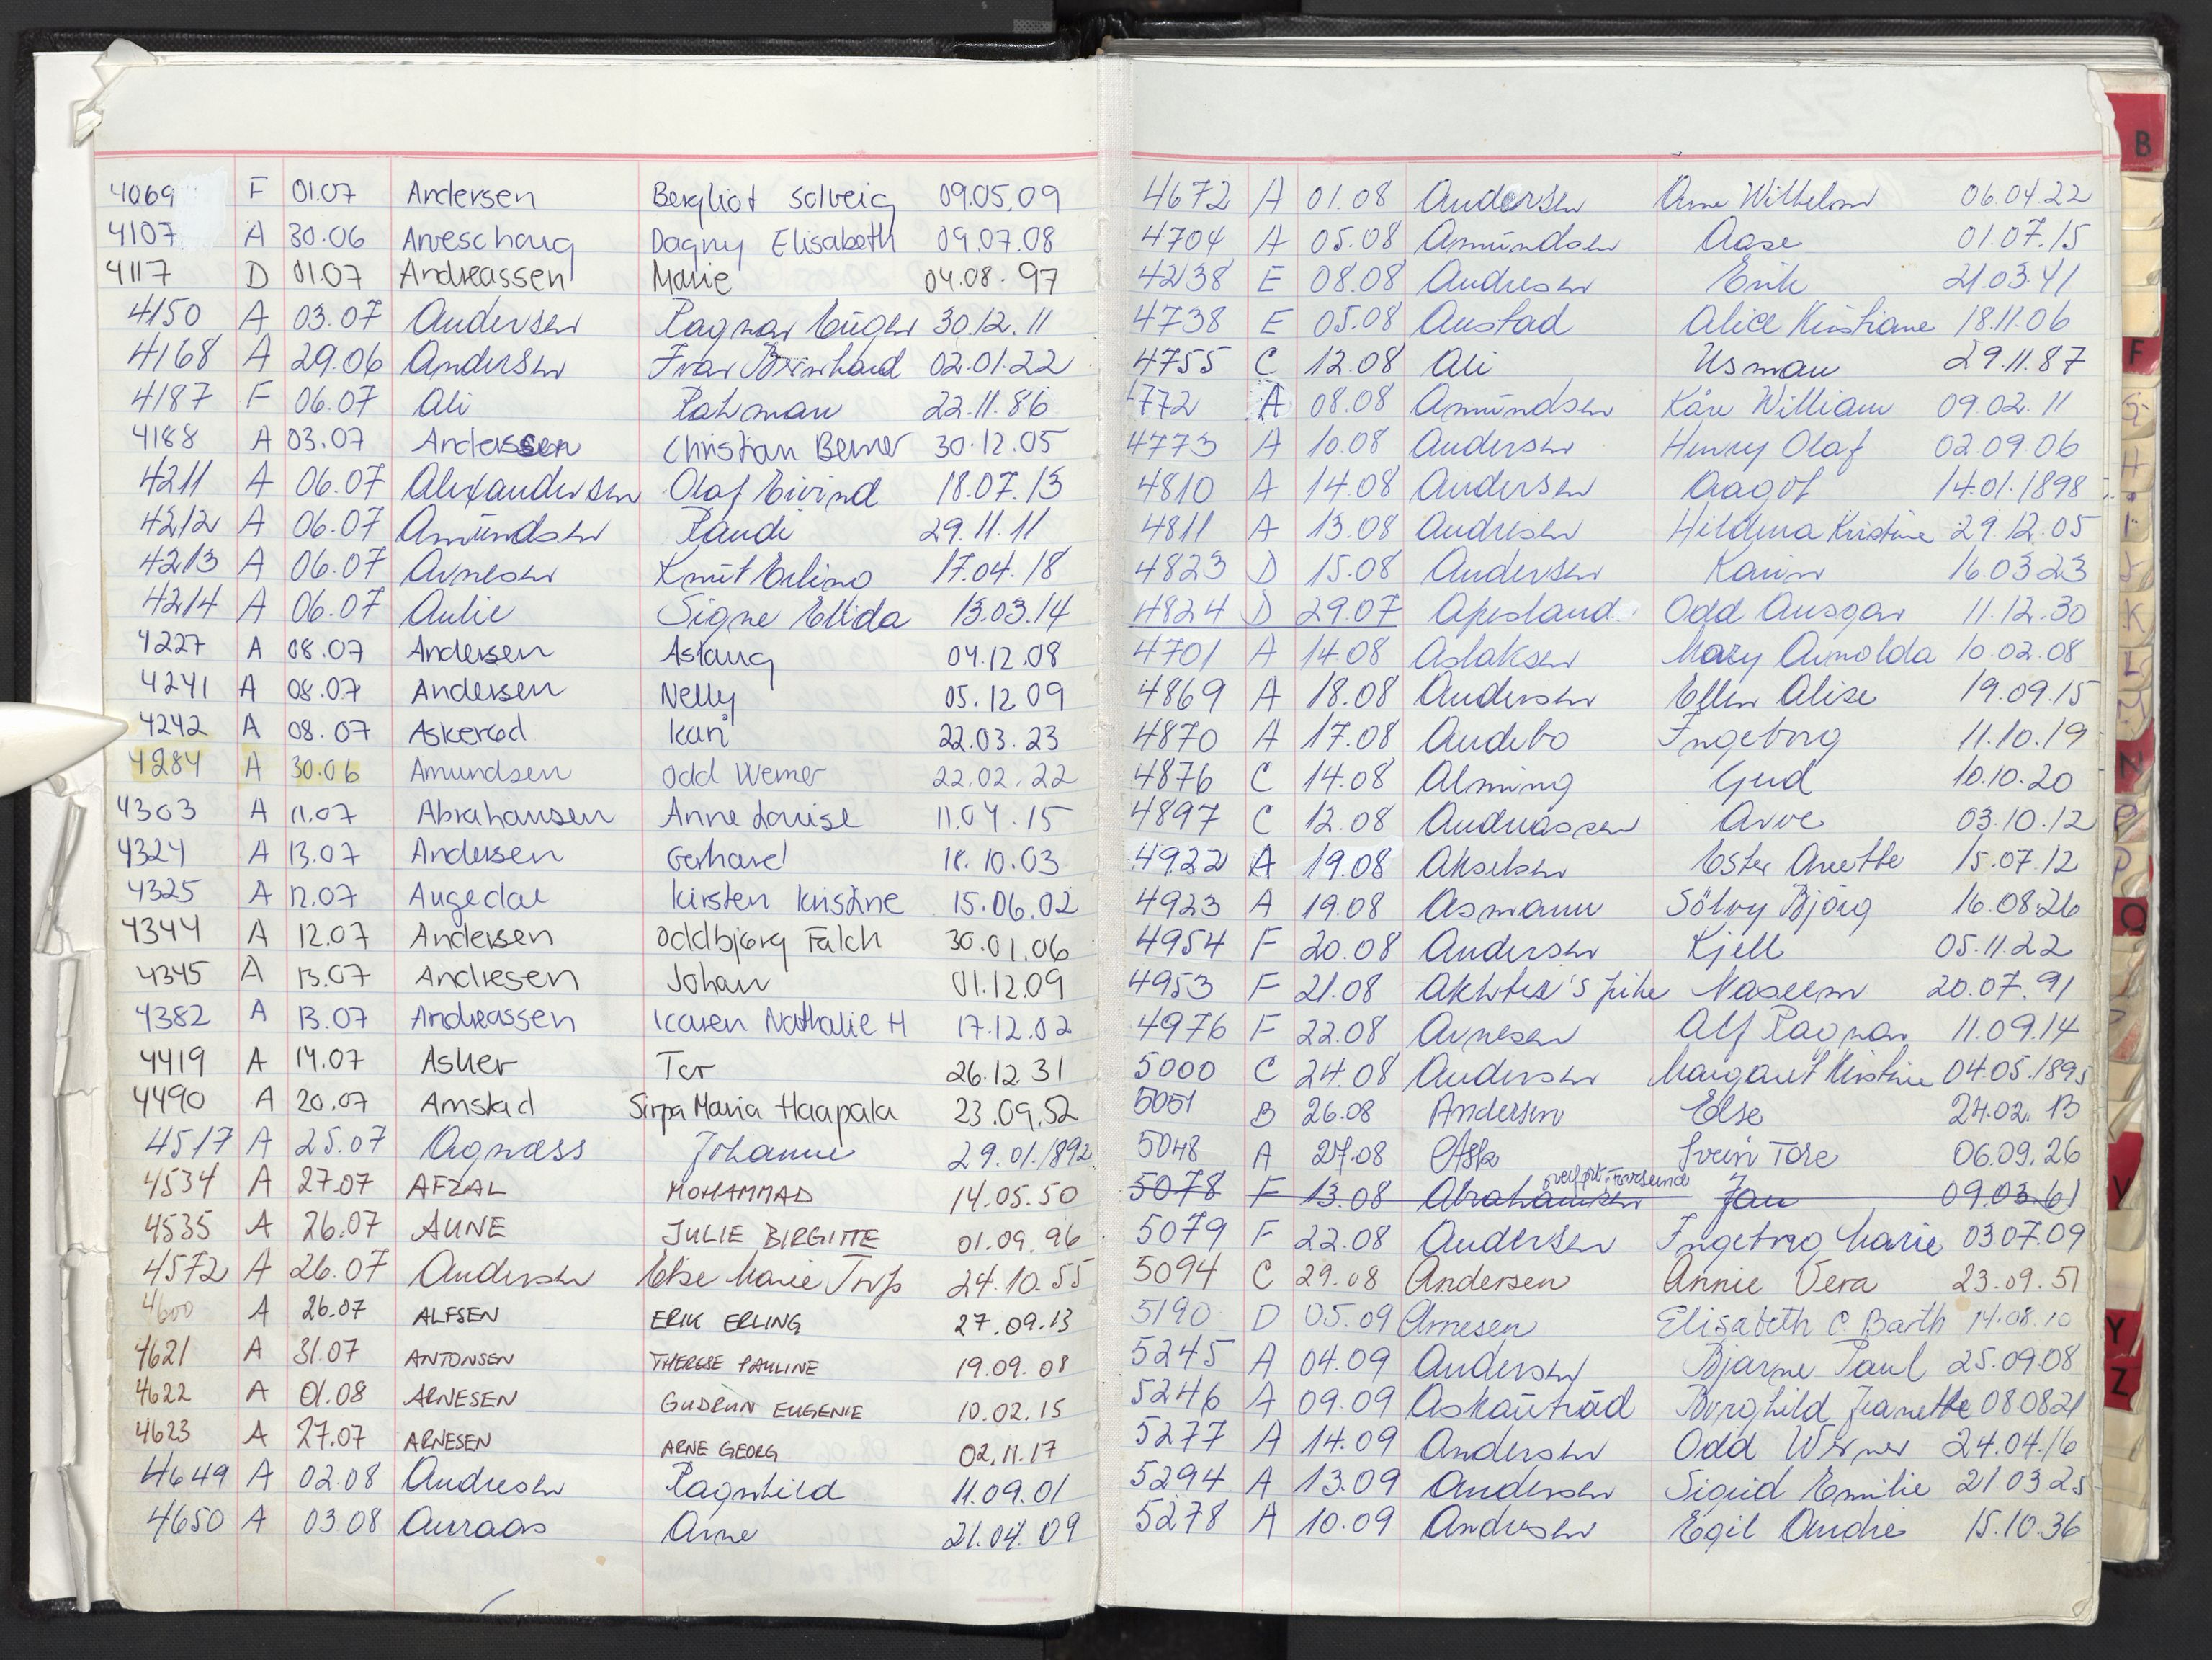 4069 F 01.07 Andersen Bergliot Solveig 09.05.09
4107 A 30.06 Arveschoug Dagny Elisabeth 09.07.08
4117 D 01.07 Andreassen Marie 04.08.97
4150 A 03.07 Andersen Ragnar Eugen 30.12.11
4168 A 29.06 Andersen Ivar Bernhard 02.01.22
4187 F 06.07 Ali Rahman 22.11.86
4188 A 03.07 Anderssen Christian Berner 30.12.05
4211 A 06.07 Alexandersen Olaf Eivind 18.07.13
4212 A 06.07 Amundsen Randi 29.11.11
4213 A 06.07 Arnesen Knut Erling 17.04.18
4214 A 06.07 Aulie Signe Elida 13.03.14
4227 A 08.07 Andersen Aslaug 04.12.08
4241 A 08.07 Andersen Nelly 05.12.09
4242 A 08.07 Askerød Kari 22.03.23
4284 A 30.06 Amundsen Odd Werner 22.02.22
4303 A 11.07 Abrahamsen Anne Louise 11.04.15
4324 A 13.07 Andersen Gerhard 18.10.03
4325 A 12.07 Augedal Kirsten Kristine 15.06.02
4344 A 12.07 Andersen Oddbjørg Falch 30.01.06
4345 A 13.07 Andresen Johan 01.12.09
4382 A 13.07 Andreassen Karen Nathalie H 17.12.02
4419 A 14.07 Asker Tor 26.12.31
4490 A 20.07 Amstad Sirpa Maria Haapala 23.09.52
4517 A 25.07 Agnæss Johanne 29.01.1892
4534 A 27.07 AFZAL MOHAMMAD 14.05.50
4535 A 26.07 AUNE JULIE BIRGITTE 01.09.96
4572 A 26.07 Andersen Else Marie Torp 24.10.55
4600 A 26.07 ALFSEN ERIK ERLING 27.09.13
4621 A 31.07 ANTONSEN THERESE PAULINE 19.09.08
4622 A 01.08 ARNESEN GUDRUN EUGENIE 10.02.15
4623 A 27.07 ARNESEN ARNE GEORG 02.11.17
4649 A 02.08 Andresen Ragnhild 11.09.01
4650 A 03.08 Auraas Arne 21.04.09
4672 A 01.08 Andersen Arne Wilhelm 06.04.22
4704 A 05.08 Amundsen Aase 01.07.15
4238 E 08.08 Andresen Erik 21.03.41
4738 E 05.08 Austad Alice Kristiane 18.11.06
4755 C 12.08 Ali Usman 29.11.87
4772 A 08.08 Amundsen Kåre William 09.02.11
4773 A 10.08 Andersen Henry Olaf 02.09.06
4810 A 14.08 Andersen Aagot 14.01.1898
4811 A 13.08 Andresen Hildina Kristine 29.12.05
4823 D 15.08 Andersen Karin 16.03.23
4824 D 29.07 Apesland Odd Ansgar 11.12.30
4701 A 14.08 Aslaksen Mary Arnolda 10.02.08
4869 A 18.08 Andersen Ellen Alise 19.09.15
4870 A 17.08 Andebo Ingeborg 11.10.19
4876 C 14.08 Alming Gerd 10.10.20
4897 C 12.08 Andreassen Arve 03.10.12
4922 A 19.08 Akselsen Ester Anette 15.07.12
4923 A 19.08 Asmann Sölvy Bjørg 16.08.26
4954 F 20.08 Andersen Kjell 05.11.22
4953 F 21.08 Akhter's pike Naseem 20.07.91
4976 F 22.08 Arnesen Alf Ragnar 11.09.14
5000 C 24.08 Andersen Margaret Kirstine 04.05.1895
5051 B 26.08 Andersen Else 24.02.13
5048 A 27.08 Ask Svein Tore 06.09.26
5078 F 13.08 Abrahamsen Jan 09.03.61
5079 F 22.08 Andersen Ingeborg Marie 03.07.09
5094 C 29.08 Andersen Annie Vera 23.09.51
5190 D 05.09 Arnesen Elisabeth C. Barth 14.08.10
5245 A 04.09 Andersen Bjarne Paul 25.09.08
5246 A 09.09 Askautråd Borghild Jeanette 08.08.21
5277 A 14.09 Andersen Odd Werner 24.04.16
5294 A 13.09 Andersen Sigrid Emilie 21.03.25
5278 A 10.09 Andresen Egil Andre 15.10.36
B
F
G
H
I
J
K
L
N
O
P
Q
V
Y
Z